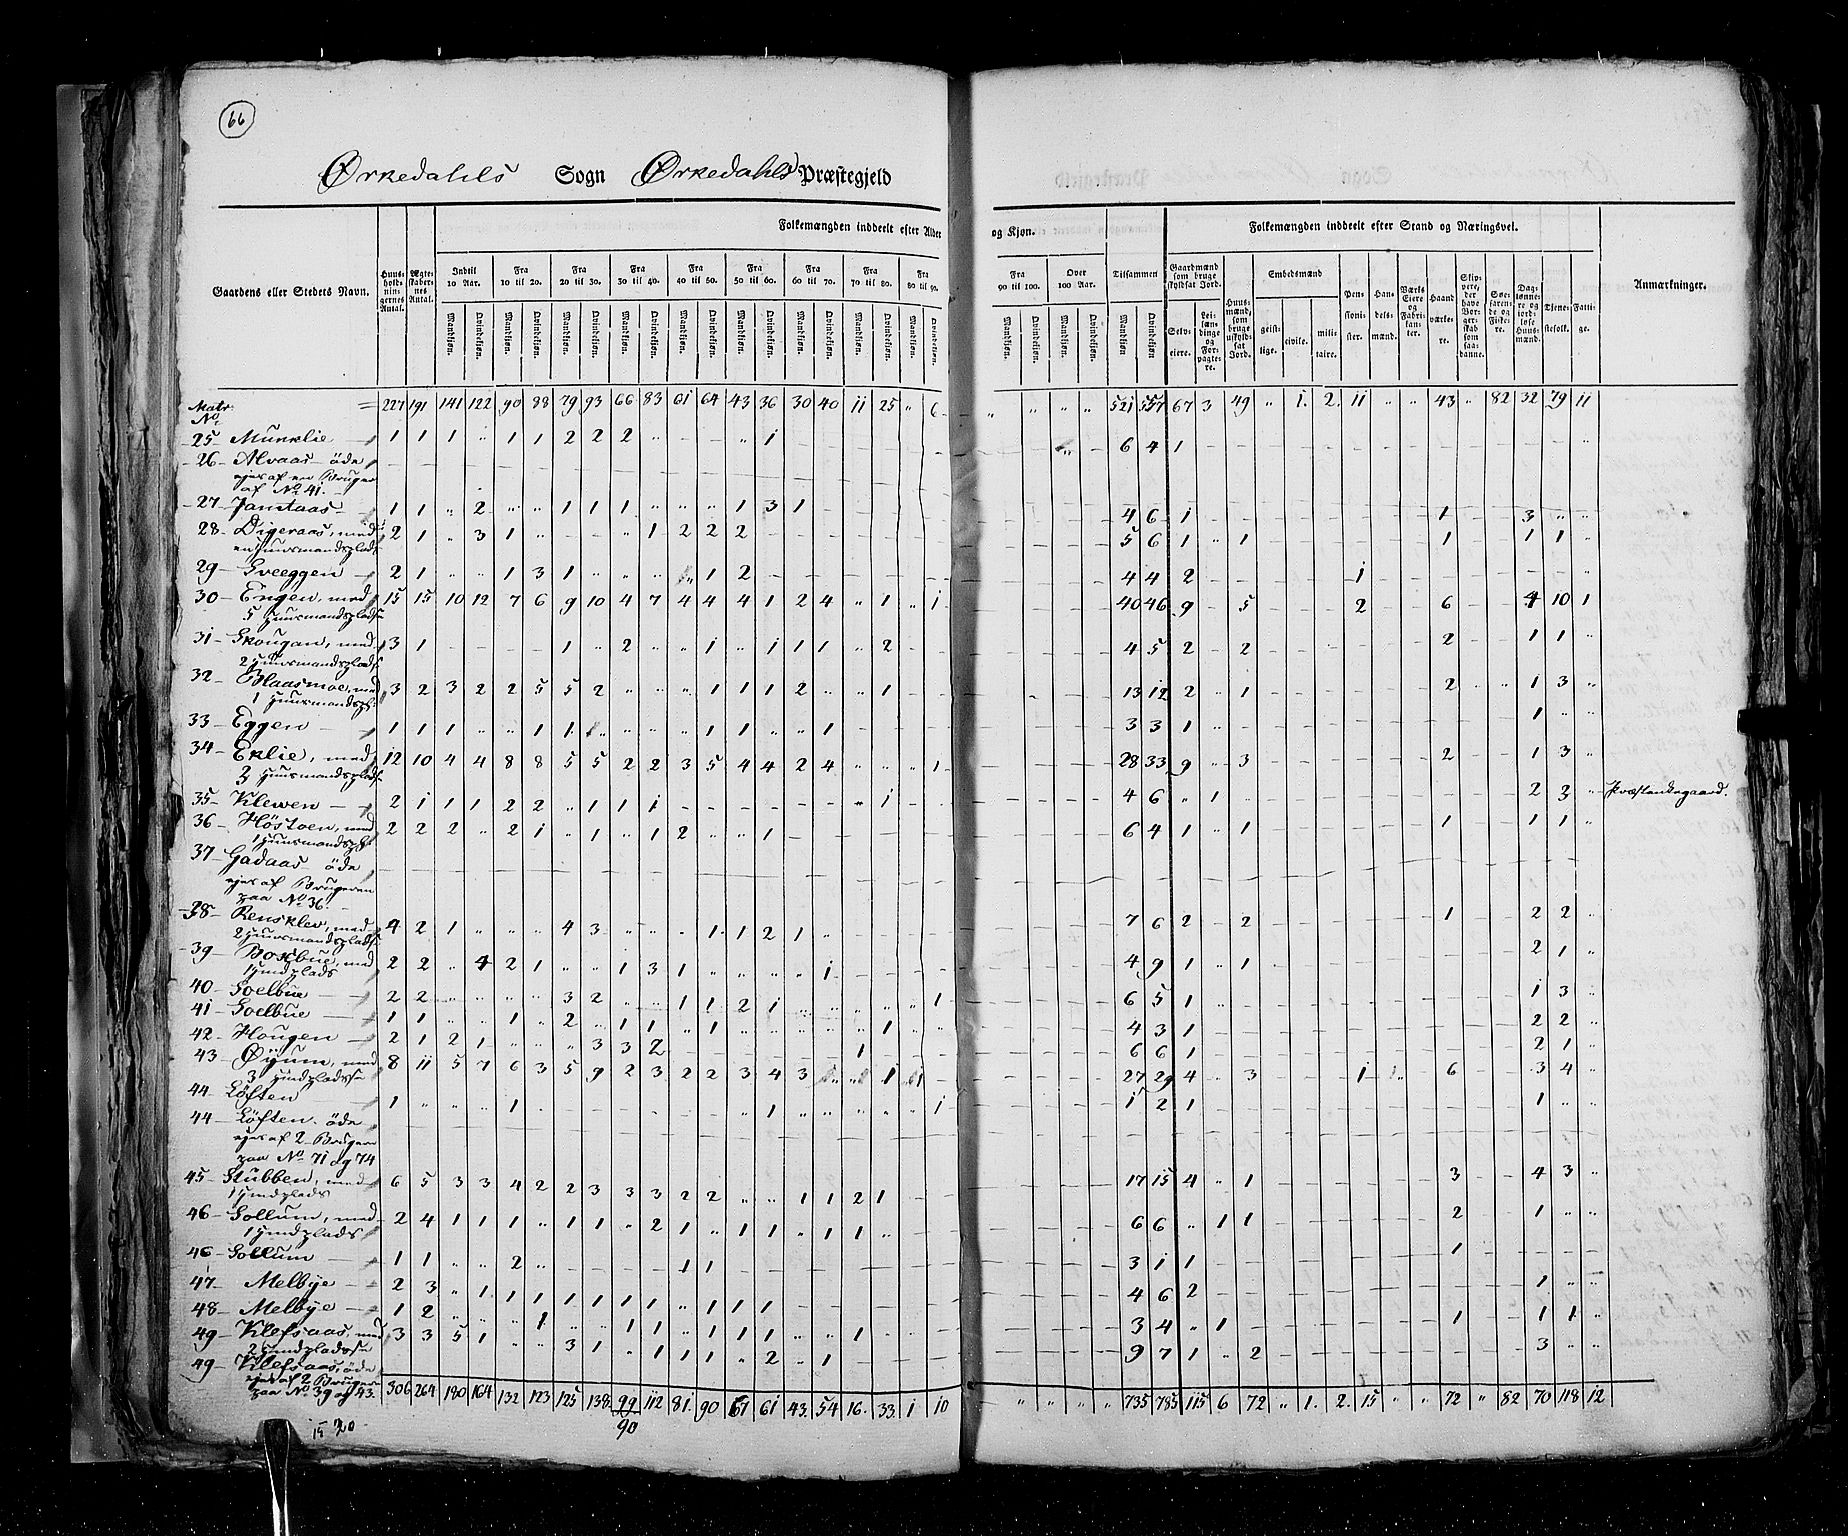 66
Ørkedahls Sogn Ørkedahls Præstegjeld
Folkemængden inddeelt efter Alder og Kjøn.
Folkemængden inddeelt efter Stand og Næringsvei.
Gaardens eller Stedets Navn.
Huusholdningernes Antal.
Ægteskabernes Antal.
Indtil 10 Aar.
Fra 10 til 20.
Fra 20 til 30.
Fra 30 til 40.
Fra 40 til 50.
Fra 50 til 60.
Fra 60 til 70.
Fra 70 til 80.
Fra 80 til 90.
Fra 90 til 100.
Over 100 Aar.
Tilsammen
Mandkjøn. Qvindekjøn.
Gaardmænd som bruge skyldsat Jord.
Selveiere.
Leilændinge og Forpagtere.
Huusmænd, som bruge uskyldsat Jord.
Embedsmænd
geistlige. civile. militaire.
Pensionister.
Handelsmænd.
Værks Eiere og Fabrikanter.
Haandværkere.
Skippere, der have Borgerskab som saadanne.
Søefarende og Fiskere.
Daglønnere og jordløse Huusmænd.
Tjenestefolk.
Fattige.
Anmærkninger.
Matr. No = 227 191 141 122 90 88 79 93 66 83 61 64 43 36 30 40 11 25 " 6 " " " " 521 557 67 3 49 " 1. 2. 11 " " 43 " 82 32 79 11
25 Munklie 1 1 1 " 1 1 2 2 2 " — — " 1 6 4 1
26 Alvaas öde
ejes af en Bruger
af No 41.
27 Jamtaas 1 1 " 2 " " 1 1 1 " " " 1 3 1 4 6 1 1 3 " "
28 Digeraas, med 2 1 " 3 1 " — — " 1 2 2 2 5 6 1 " 1 1 1 1 "
en Huusmandsplads
29 Sveeggen 2 1 " " 1 3 1 " " " " 1 2 4 4 2 1
30 Engen, med 15 15 10 12 7 6 9 10 4 7 4 4 4 1 2 4 " 1 " 1 40 46 9 5 2 6 4 10 1
5 Huusmandspladse
31 Skougan, med 3 1 1 " 2 " " 1 " 1 1 1 " 2 4 5 2 2 2 1 1 "
2 Huusmandspladse
32 Blaasmoe, med 3 2 3 2 2 5 5 2 " " " 1 1 1 2 " " 1 13 12 2 " 1 2 " " 1 3 "
1 Huusmandspl.
33 Eggen 1 1 1 " " 1 1 " " " 1 1 " " 1 3 3 1 1 " "
34 Eklie, med 12 10 4 4 8 8 5 5 2 2 3 5 4 4 2 4 " " " 1 28 33 9 " 3 2 1 3 "
3 Huusmandspladse
35 Klewen 2 1 1 1 2 2 " 1 1 1 " 1 4 6 " 1 2 3 " Præsteenkegaard.
36 Höstoen, med 2 2 2 " 2 1 " 1 " 1 2 " " 1 6 4 1 " 1 1 1 1 "
1 Huusmandspl.
37 Gadaas öde
ejes af Brugeren
paa No 36.
38 Rensklev, med 4 2 1 " " " 4 3 " " " 1 1 2 1 " 7 6 2 2 1 2 2 "
2 Huusmandspladse
39 Boskbue, med 2 2 " 4 2 1 " " 1 3 1 " " " " 1 4 9 1 " 1 2 1 "
1 Huusplads
40 Soelbue 2 2 " " " " 3 2 " " 1 1 2 1 1 6 5 1 1 3 "
41 Soelbue 1 1 " " 1 " 2 " 1 1 " 1 1 4 3 1 2 2 "
42 Hougen 2 1 2 1 " " " 3 3 2 1 6 6 1 2 1 "
43 Øyum, med 8 11 5 7 6 3 5 9 2 3 2 2 3 4 3 1 27 29 4 " 3 1 6 3 4 "
3 Huuspladse
44 Löften 1 " " " 1 1 1 1 2 1 1 " "
44 Löften öde
ejes af 2 Brugere
paa No 71 og 74
45 Stubben, med 6 5 3 3 4 2 2 3 3 3 2 2 " " 1 1 2 1 17 15 4 " 1 3 4 3 "
1 Huusplads
46 Sollum, med 2 4 1 1 1 " 1 1 " 2 1 " 1 1 " 1 1 " 6 6 " 1 1 2 1 " "
1 Huusplads
46 Sollum 1 1 " " 2 " 1 1 3 1 1 1
47 Melbye 2 3 " 1 1 1 1 1 1 1 " 1 1 1 4 6 2 1 " "
48 Melbye 1 2 " " " 1 " " 1 1 " 1 1 1 " " 1 3 4 " 1 1 1 1 "
49 Klefsaas, med 3 3 5 1 " " 3 1 " 1 1 1 " 2 " 1 9 7 1 " 2 3 " "
2 Huuspladse
49 Klefsaas, öde
ejes af 2 Brugere
paa No 39 og 43.
306 264 180 164 132 123 125 138 99 112 81 90 67 61 43 54 16 33 1 10 " " " " 735 785 115 6 72 " 1. 2. 15 " " 72 " 82 70 118 12
90
15 20